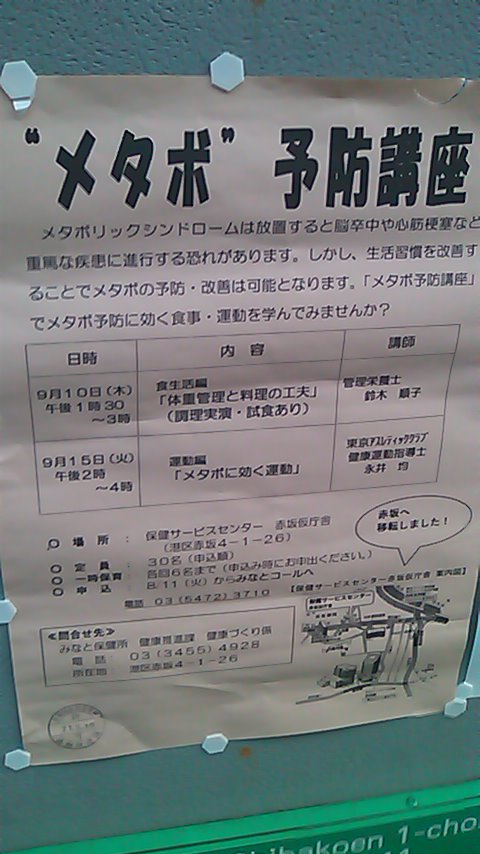 “メタボ”予防講座
メタボリックシンドロームは放置すると脳卒中や心筋梗塞など
重篤な疾患に進行する恐れがあります。しかし、生活習慣を改善す
ることでメタボの予防・改善は可能となります。「メタボ予防講座」
でメタボ予防に効く食事・運動を学んでみませんか？
日時 内容 講師
9月10日（木）
午後1時30
～3時
食生活編
「体重管理と料理の工夫」
（調理実演・試食あり）
管理栄養士
鈴木 順子
9月15日（火）
午後2時
～4時
運動編
「メタボに効く運動」
東京アスレティッククラブ
健康運動指導士
永井 均
赤坂へ
移転しました！
○ 場所： 保健サービスセンター 赤坂仮庁舎
（港区赤坂4－1－26）
○ 定員： 30名（申込順）
○ 一時保育： 各回6名まで（申込み時にお申出ください。）
○ 申込： 8/11（火）からみなとコールへ
電話 03（5472）3710
【保健サービスセンター赤坂仮庁舎 案内図】
保健サービスセンター
赤坂仮庁舎
≪問合せ先≫
みなと保健所 健康推進課 健康づくり係
電話： 03（3455）4928
所在地： 港区赤坂4－1－26
Shibakoen 1-cho